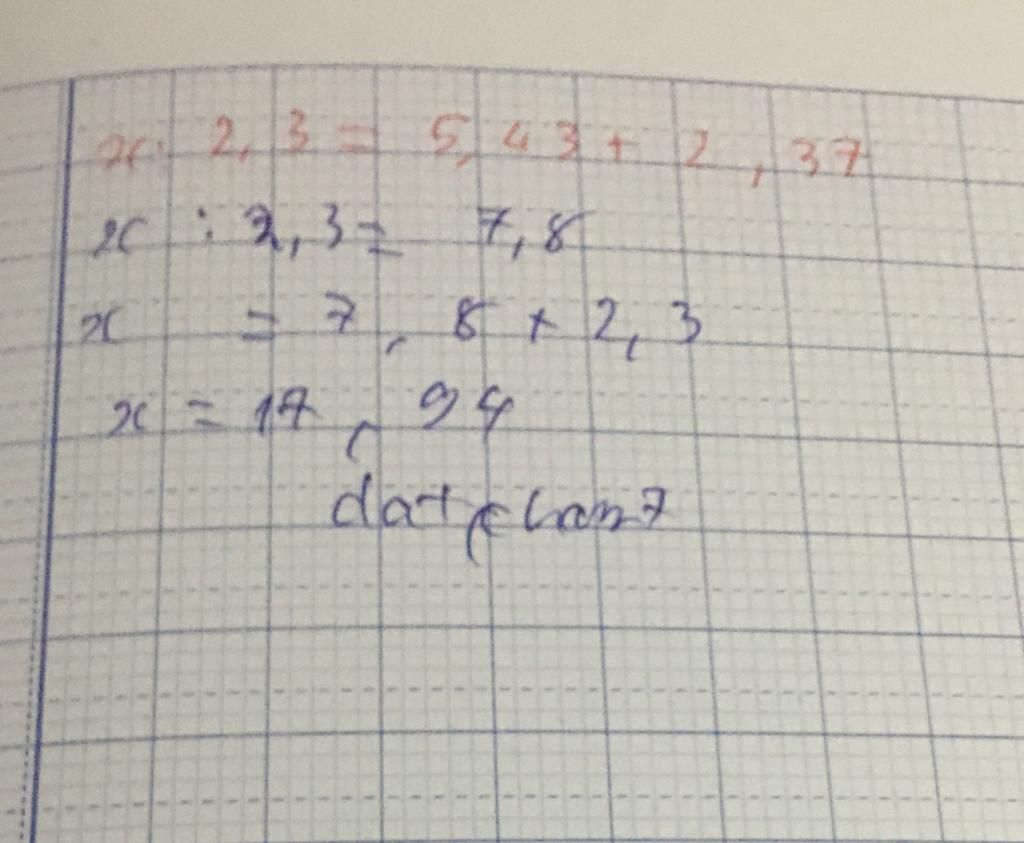 x : 2,3 = 5,43 + 2,37
x : 2,3 = 7,8
x = 7,8 x 2,3
x = 17,94